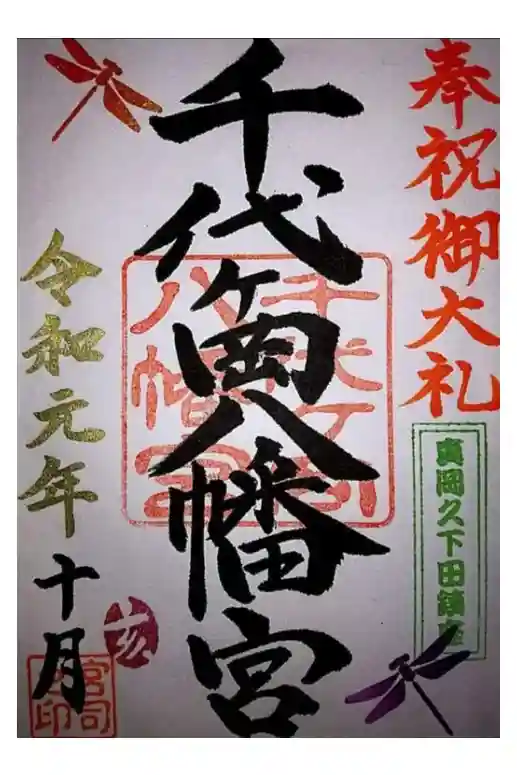 奉祝御大礼
真岡久下田鎮座
千代ヶ岡八幡宮
千代ヶ岡
八幡宮
令和元年
十月
亥
宮司
印